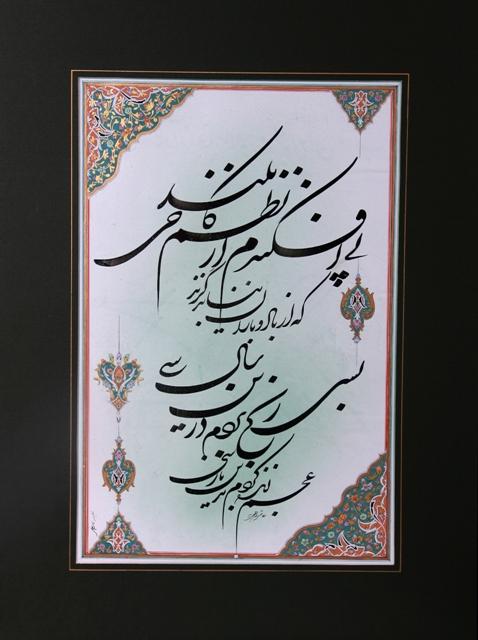 پی افکندم از نظم کاخی بلند
که از باد و باران نیابد گزند
بسی رنج بردم در این سال سی
عجم زنده کردم بدین پارسی